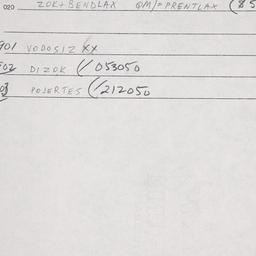 020 ZOK+BENDLAX QM)=PRENTLAX (85
901 VODOSIZ XX
902 DIZOK (/053050
03 POJERTES (/212050